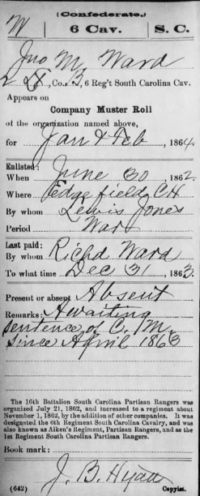 (Confederate.)
W 6 Cav. S. C.
Jno M. Ward
Co. B, 6 Reg't South Carolina Cav.
Appears on
Company Muster Roll
of the organization named above,
for Jan & Feb, 1864.
Enlisted:
When June 30, 1862.
Where Edgefield CH
By whom Lewis Jones
Period War
Last paid:
By whom Richd Ward
To what time Dec 31, 1863.
Present or absent Absent
Remarks: Awaiting
sentence of C. M.
since April 1863
The 16th Battalion South Carolina Partisan Rangers was
organized July 21, 1862, and increased to a regiment about
November 1, 1862, by the addition of other companies. It was
designated the 6th Regiment South Carolina Cavalry, and was
also known as Aiken's Regiment, Partisan Rangers, and as the
1st Regiment South Carolina Partisan Rangers.
Book mark:
J. B. Hyatt
(642) Copyist.